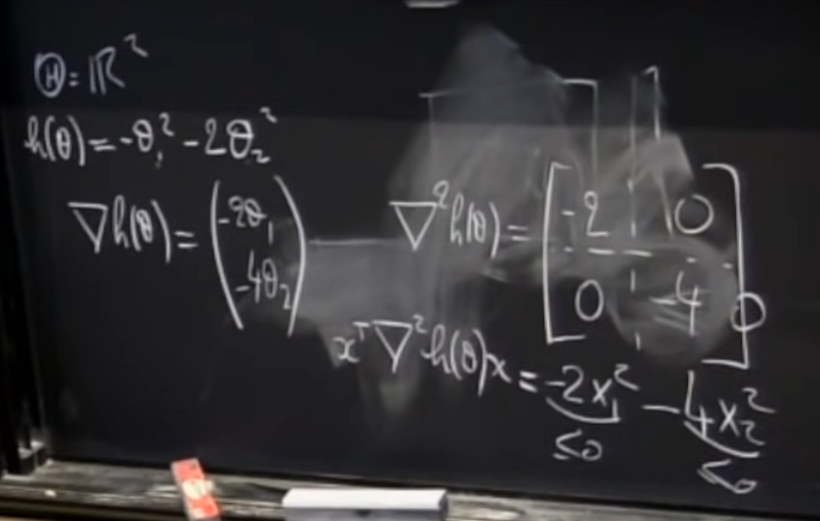 Ⓗ = ℝ²
h(θ) = -θ₁² - 2θ₂²
∇h(θ) = (-2θ₁
-4θ₂)
∇²h(θ) = [-2 0
0 -4]
xᵀ∇²h(θ)x = -2x₁² - 4x₂²
≤0 ≤0